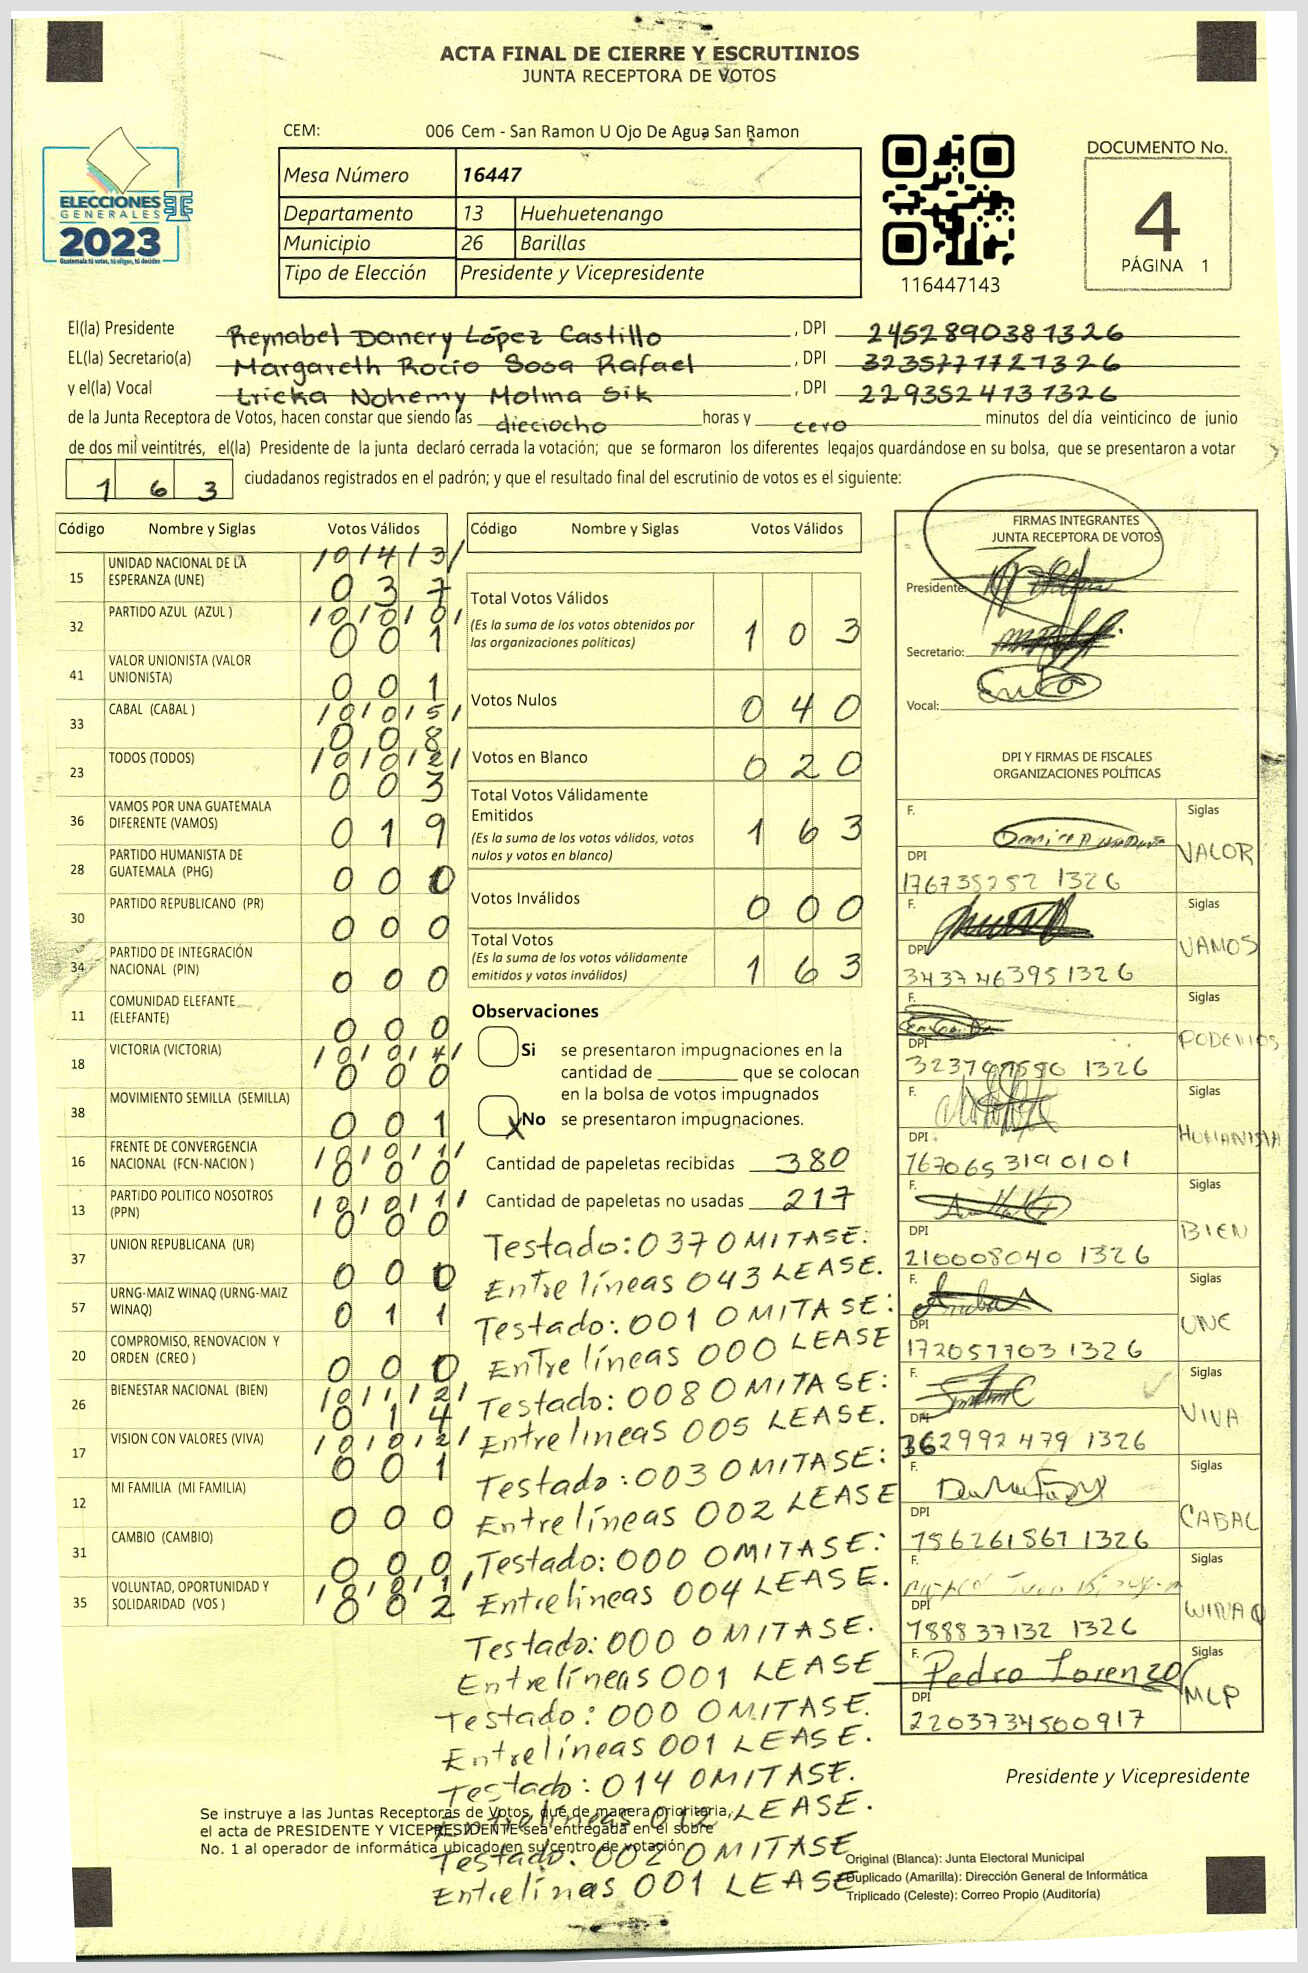 ACTA FINAL DE CIERRE Y ESCRUTINIOS
JUNTA RECEPTORA DE VOTOS
CEM: 006 Cem - San Ramon U Ojo De Agua San Ramon
Mesa Número 16447
Departamento 13 Huehuetenango
Municipio 26 Barillas
Tipo de Elección Presidente y Vicepresidente
ELECCIONES
GENERALES
2023
Guatemala tú votas, tú eliges, tú decides
116447143
DOCUMENTO No.
4
PÁGINA 1
El(la) Presidente Reynabel Danery López Castillo , DPI 2452890381326
EL(la) Secretario(a) Margareth Rocio Sosa Rafael , DPI 3235771721326
y el(la) Vocal Ericka Nohemy Molina Sik , DPI 2293524131326
de la Junta Receptora de Votos, hacen constar que siendo las dieciocho horas y cero minutos del día veinticinco de junio
de dos mil veintitrés, el(la) Presidente de la junta declaró cerrada la votación; que se formaron los diferentes legajos guardándose en su bolsa, que se presentaron a votar
1 6 3 ciudadanos registrados en el padrón; y que el resultado final del escrutinio de votos es el siguiente:
Código Nombre y Siglas Votos Válidos
15 UNIDAD NACIONAL DE LA ESPERANZA (UNE) /0/4/3/ 0 3 7
32 PARTIDO AZUL (AZUL ) /0/0/0/ 0 0 1
41 VALOR UNIONISTA (VALOR UNIONISTA) 0 0 1
33 CABAL (CABAL ) /0/0/5/ 0 0 8
23 TODOS (TODOS) /0/0/2/ 0 0 3
36 VAMOS POR UNA GUATEMALA DIFERENTE (VAMOS) 0 1 9
28 PARTIDO HUMANISTA DE GUATEMALA (PHG) 0 0 0
30 PARTIDO REPUBLICANO (PR) 0 0 0
34 PARTIDO DE INTEGRACIÓN NACIONAL (PIN) 0 0 0
11 COMUNIDAD ELEFANTE (ELEFANTE) 0 0 0
18 VICTORIA (VICTORIA) /0/0/4/ 0 0 0
38 MOVIMIENTO SEMILLA (SEMILLA) 0 0 1
16 FRENTE DE CONVERGENCIA NACIONAL (FCN-NACION ) /0/0/1/ 0 0 0
13 PARTIDO POLITICO NOSOTROS (PPN) /0/0/1/ 0 0 0
37 UNION REPUBLICANA (UR) 0 0 0
57 URNG-MAIZ WINAQ (URNG-MAIZ WINAQ) 0 1 1
20 COMPROMISO, RENOVACION Y ORDEN (CREO ) 0 0 0
26 BIENESTAR NACIONAL (BIEN) /0/1/2/ 0 1 4
17 VISION CON VALORES (VIVA) /0/0/2/ 0 0 1
12 MI FAMILIA (MI FAMILIA) 0 0 0
31 CAMBIO (CAMBIO) 0 0 0
35 VOLUNTAD, OPORTUNIDAD Y SOLIDARIDAD (VOS ) /0/0/1/ 0 0 2
Código Nombre y Siglas Votos Válidos
Total Votos Válidos 1 0 3
(Es la suma de los votos obtenidos por
las organizaciones políticas)
Votos Nulos 0 4 0
Votos en Blanco 0 2 0
Total Votos Válidamente
Emitidos 1 6 3
(Es la suma de los votos válidos, votos
nulos y votos en blanco)
Votos Inválidos 0 0 0
Total Votos
(Es la suma de los votos válidamente
emitidos y votos inválidos) 1 6 3
Observaciones
Si se presentaron impugnaciones en la
cantidad de ________ que se colocan
en la bolsa de votos impugnados
X No se presentaron impugnaciones.
Cantidad de papeletas recibidas 380
Cantidad de papeletas no usadas 217
Testado: 037 OMITASE.
Entre líneas 043 LEASE.
Testado: 001 OMITASE:
Entre líneas 000 LEASE
Testado: 008 OMITASE:
Entre lineas 005 LEASE.
Testado: 003 OMITASE:
Entre líneas 002 LEASE
Testado: 000 OMITASE:
Entre líneas 004 LEASE.
Testado: 000 OMITASE.
Entre líneas 001 LEASE
Testado: 000 OMITASE.
Entre líneas 001 LEASE.
Testado: 014 OMITASE.
Entre líneas 012 LEASE.
Testado: 002 OMITASE
Entre línas 001 LEASE
FIRMAS INTEGRANTES
JUNTA RECEPTORA DE VOTOS
Presidente:
Secretario:
Vocal:
DPI Y FIRMAS DE FISCALES
ORGANIZACIONES POLÍTICAS
F. Siglas
DPI VALOR
176735252 1326
F. Siglas
DPI VAMOS
343746395 1326
F. Siglas
DPI PODEMOS
1326
F. Siglas
DPI HUMANISTA
167065319 0101
F. Siglas
DPI BIEN
210008040 1326
F. Siglas
DPI UNE
172057703 1326
F. Siglas
DPI VIVA
362992479 1326
F. Siglas
DPI CABAL
1326
F. Siglas
DPI WINAQ
188837132 1326
F. Pedro Lorenzo Siglas
DPI MLP
2203734500917
Presidente y Vicepresidente
Se instruye a las Juntas Receptoras de Votos, que de manera prioritaria,
el acta de PRESIDENTE Y VICEPRESIDENTE sea entregada en el sobre
No. 1 al operador de informática ubicado en su centro de votación
Original (Blanca): Junta Electoral Municipal
Duplicado (Amarilla): Dirección General de Informática
Triplicado (Celeste): Correo Propio (Auditoría)